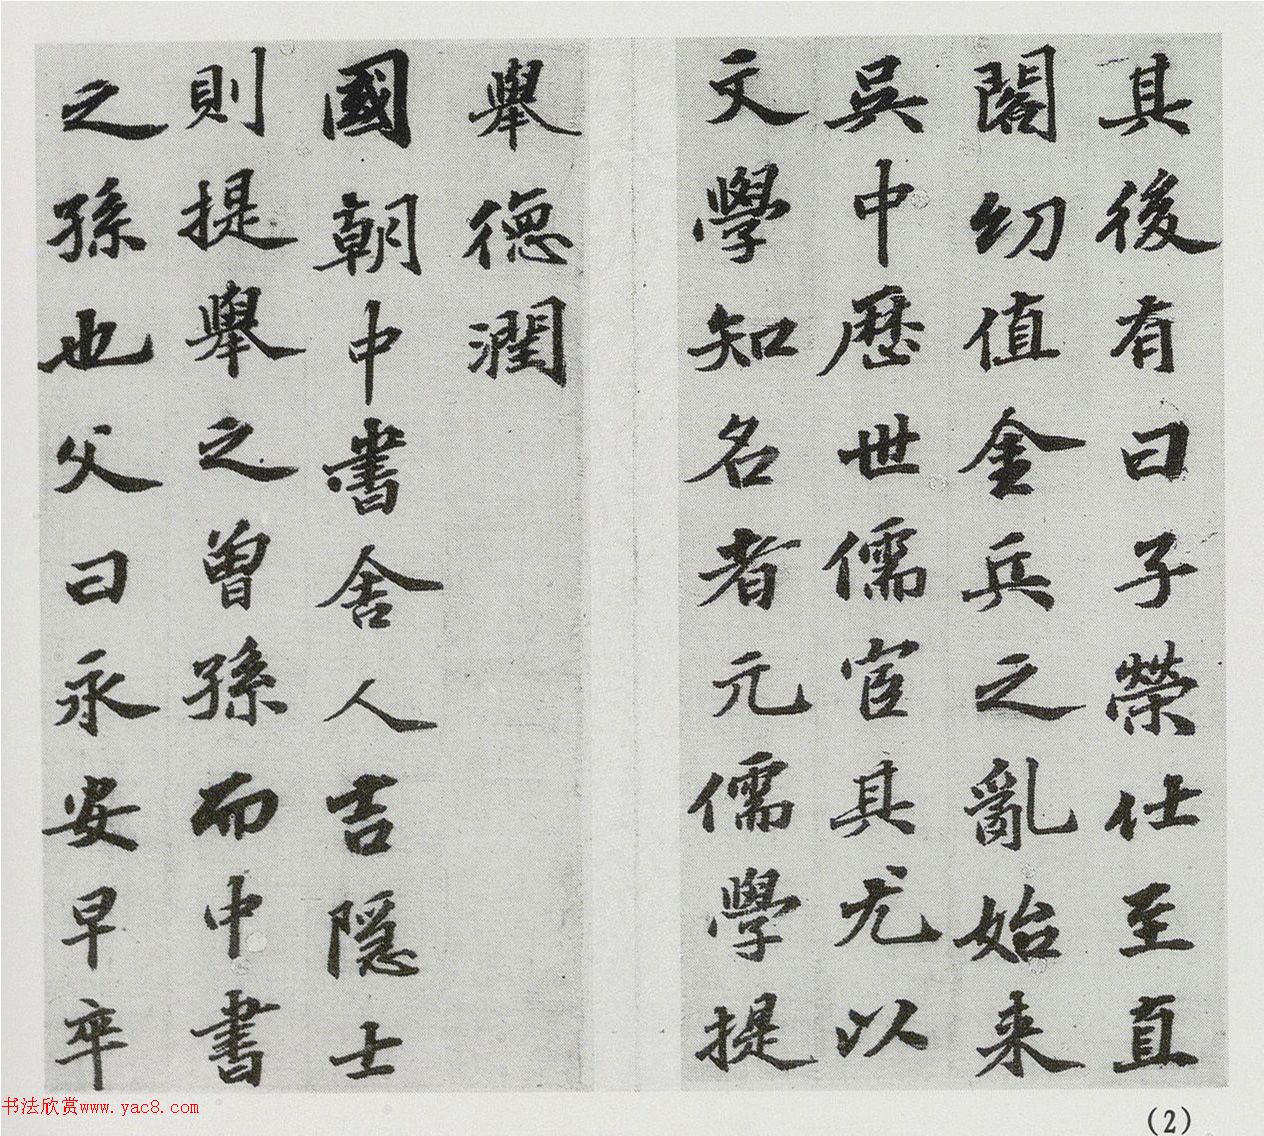 其後有曰子榮仕至直
閣幼值金兵之亂始来
吳中歷世儒宦其尤以
文學知名者元儒學提
舉德潤
國朝中書舍人吉隱士
則提舉之曾孫而中書
之孫也父曰永安早卒
书法欣赏www.yac8.com
(2)